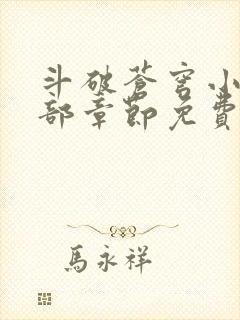 斗破苍穹小
部章節免費
馬永祥